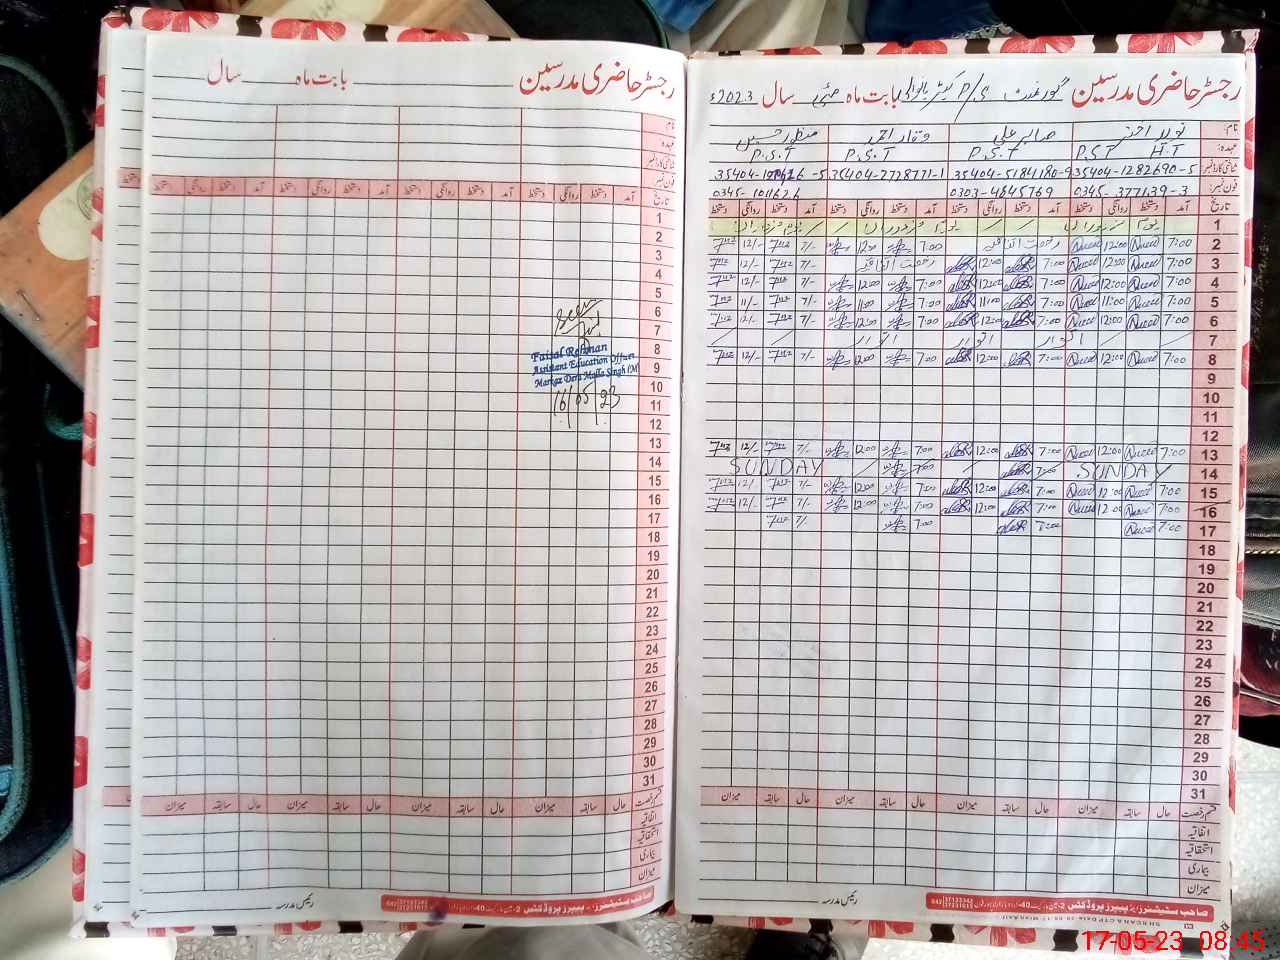 رجسٹر حاضری مدرسین بابت ماہ سال
نام
عہدہ
شناختی کارڈ نمبر
فون نمبر
تاریخ آمد دستخط روانگی دستخط آمد دستخط روانگی دستخط آمد دستخط روانگی دستخط آمد دستخط روانگی دستخط
1
2
3
4
5
6
7
8
9
10
11
12
13
14
15
16
17
18
19
20
21
22
23
24
25
26
27
28
29
30
31
Seen
Faisal Rehman
Assistant Education Officer
Markaz Dera Malla Singh (M)
16/05/23
قسم رخصت حال سابقہ میزان حال سابقہ میزان حال سابقہ میزان حال سابقہ میزان
اتفاقیہ
استحقاقیہ
بیماری
میزان
رئیس مدرسہ
رجسٹر حاضری مدرسین گورنمنٹ P/S بابت ماہ مئی سال 2023ء
نام: نوید اختر صابر علی وقار احمد منظور حسین
عہدہ: H.T P.S.T P.S.T P.S.T P.S.T
شناختی کارڈ نمبر 35404-1282690-5 35404-5184180-9 35404-2728771-1
فون نمبر: 0345-377139-3 0303-4845769 0345-1011626
تاریخ آمد دستخط روانگی دستخط آمد دستخط روانگی دستخط آمد دستخط روانگی دستخط آمد دستخط روانگی دستخط
1 یوم مزدوراں
2 7:00 12:00 رخصت اتفاقیہ 7:00 12:00 7/- 12/-
3 7:00 12:00 7:00 12:00 رخصت اتفاقیہ 7/- 12/-
4 7:00 12:00 7:00 12:00 7:00 12:00 7/- 12/-
5 7:00 11:00 7:00 11:00 7:00 11:00 7/- 11/-
6 7:00 12:00 7:00 12:00 7:00 12:00 7/- 12/-
7 اتوار اتوار
8 7:00 12:00 7:00 12:00 7:00 12:00 7/- 12/-
9
10
11
12
13 7:00 12:00 7:00 12:00 7:00 12:00 7/- 12/-
14 SUNDAY 7:00 7:00 SUNDAY
15 7:00 12:00 7:00 12:00 7:00 12:00 7/- 12/-
16 7:00 12:00 7:00 12:00 7:00 12:00 7/- 12/-
17 7:00 7:00 7:00 7/-
18
19
20
21
22
23
24
25
26
27
28
29
30
31
قسم رخصت حال سابقہ میزان حال سابقہ میزان حال سابقہ میزان حال سابقہ میزان
اتفاقیہ
استحقاقیہ
بیماری
میزان
رئیس مدرسہ
17-05-23 08:45